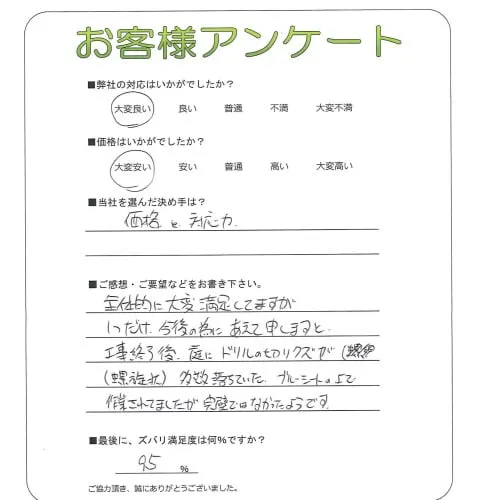 お客様アンケート
■弊社の対応はいかがでしたか?
大変良い 良い 普通 不満 大変不満
■価格はいかがでしたか?
大変安い 安い 普通 高い 大変高い
■当社を選んだ決め手は?
価格と対応力
■ご感想・ご要望などをお書き下さい。
全体的に大変満足してますが
1つだけ、今後の為にあえて申しますと、
工事終了後、庭にドリルの切りクズが
(螺旋状) 多数落ちていた。ブルーシートの上で
作業されてましたが完璧ではなかったようです。
■最後に、ズバリ満足度は何%ですか?
95 %
ご協力頂き、誠にありがとうございました。